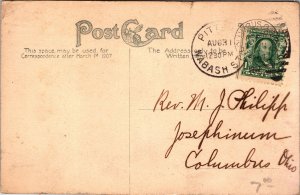 Post Card
This space may be used for
Correspondence after March 1st 1907
The Address
Written
PITT
AUG 31
12 30 PM
WABASH S
Rev. M. J. Philipp
Josephinum
Columbus
Ohio